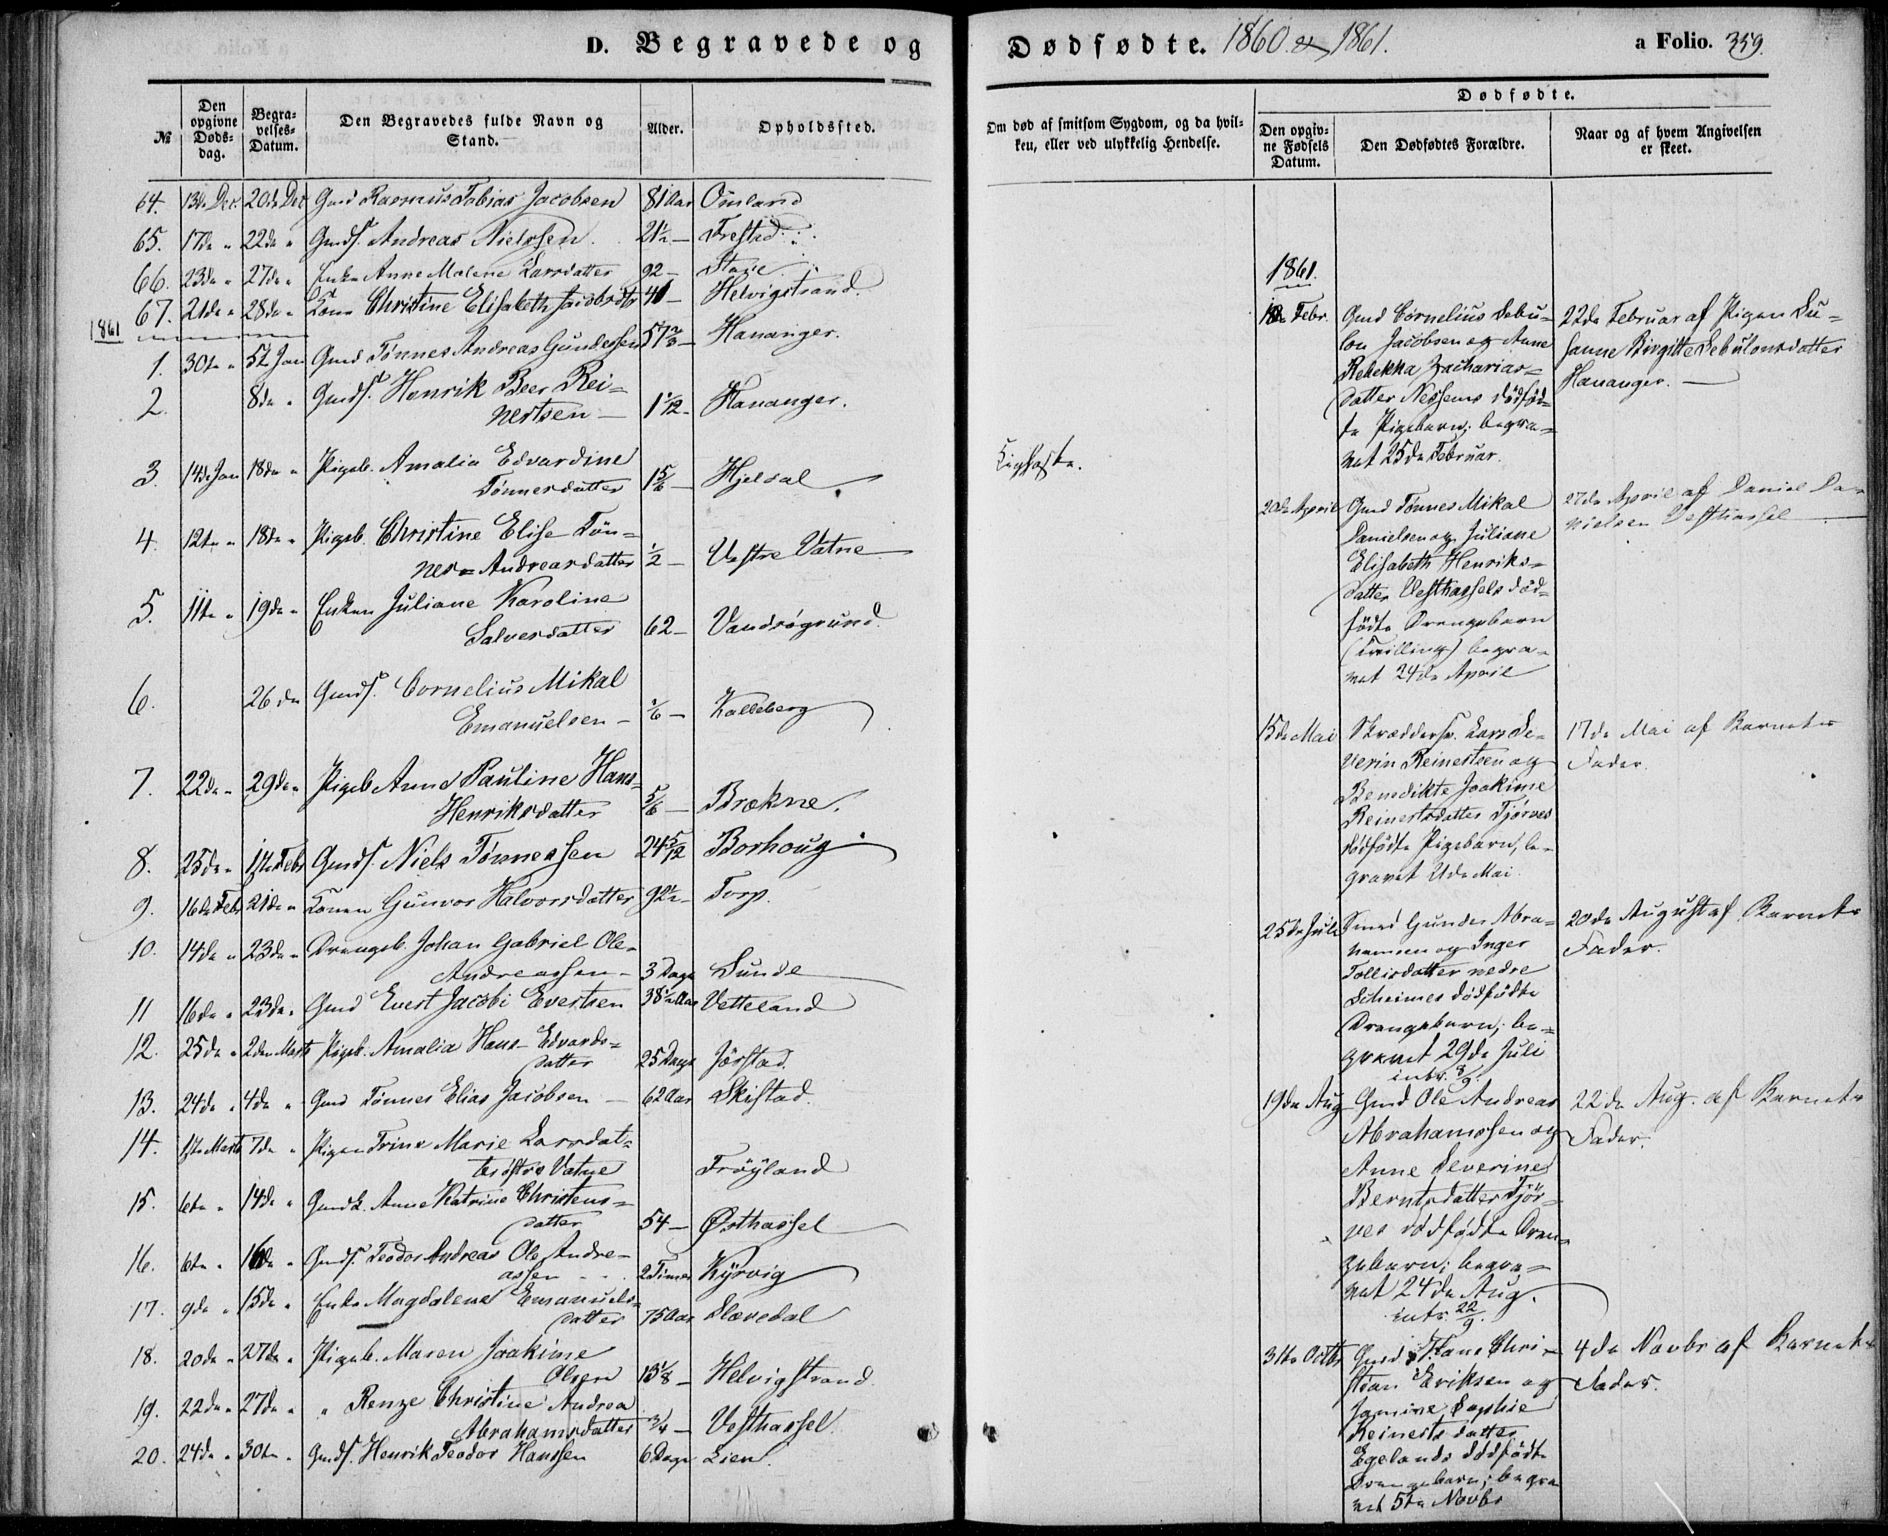 D. Begravede og
Dødfødte. 1860 & 1861.
a Folio. 359.
№
Den opgivne Døds-dag.
Begra-velses-Datum.
Den Begravedes fulde Navn og Stand.
Alder.
Opholdssted.
Om død af smitsom Sygdom, og da hvil-
ken, eller ved ulykkelig Hendelse.
Dødfødte.
Den opgiv-ne Fødsels Datum.
Den Dødfødtes Forældre.
Naar og af hvem Angivelsen er skeet.
64. 13de Dec. 20de Dec Gmd Rasmus Tobias Jacobsen 81 Aar Omland
65. 17de " 22de " Gmds. Andreas Nielssen. 2½ — Frestad
66. 23de " 27de " Enke Anne Malene Larsdatter 92 — Stave
67. 21de " 28de " Kone Christine Elisabeth Jacobsdtr 41 — Helvigstrand.
1861
1. 30te " 5te Jan Gmd Tønnes Andreas Gundersen 57⅔ — Hananger.
2. 8de " Gmds. Henrik Beer Rei=
nertsen — 1 1/12 — Hananger.
3. 14de Jan 18de " Pigeb. Amalia Edvardine
Tønnesdatter 1⅚ — Hjelsal
Kighoste.
4. 12te " 18de " Pigeb. Christine Elise Tøn=
nes=Andreasdatter ½ — Vestre Vatne
5. 11te " 19de " Enken Juliane Karoline
Salvesdatter 62 — Vandrøgrund.
6. 26de Gmds. Cornelius Mikal
Emanuelsen — ⅙ — Kalleberg
7. 22de " 29de " Pigeb Anne Pauline Hans=
Henriksdatter ⅚ — Brækne.
8. 25de " 1ste Febr Gmds. Niels Tønnessen 24 5/12 Borhoug
9. 16de Febr 21de " Konen Gunvor Halvorsdatter 92½ — Torp.
10. 14de " 23de " Drengeb. Johan Gabriel Ole=
Andreassen — 3 Dage Sunde
11 16de " 23de " Gmd Evert Jacobi Evertsen 38½ Aar Vetteland
12. 25de " 2den Marts Pigeb. Amalia Hans=Edvards=
datter 25 Dage Jørstad.
13. 24de " 4de " Gmd Tønnes Elias Jacobsen — 62 Aar Skistad.
14. 1ste Marts 7de " Pigen Trine Marie Larsdat=
ter østre Vatne Frøyland
15. 6te " 14de " Gmdk. Anne Katrine Christens=
datter 54 — Østhassel
16. 6te " 16de " Gmds. Teodor Andreas Ole Andre=
assen 2 Timer Kyrvig
17. 9de " 15de " Enke Magdalene Emanuels=
datter 75 Aar Slævedal
18. 20de " 27de " Pigeb. Maren Joakime
Olsen 13⅛ — Helvigstrand
19. 22de " 27de " " Renze Christine Andrea
Abrahamsdatter ¾ — Vesthassel.
20. 24de " 30te " Gmds. Henrik Teodor Hanssen 6 Dage Lien.
1861.
18de Febr. Gmd Cornelius Sebu=
lon Jacobsen og Anne
Rebekka Zacharias=
datter Nesheims dødfød=
te Pigebarn; begra=
vet 25de Februar.
22de Februar af Pigen Su=
sanne Birgitte Sebulonsdatter
Hananger. —
20de April Gmd Tønnes Mikal
Danielsen og Juliane
Elisabeth Henriks=
datter Vesthassels død=
fødte Drengebarn
(Tvilling) begra=
vet 24de April
27de April af Daniel Da=
nielsen Vesthassel
15de Mai Skrædderss. Lars Se=
verin Reinertsen og
Benedikte Joakime
Reinertsdatter Tjørves
dødfødte Pigebarn, be=
gravet 21de Mai
17de Mai af Barnets
Fader.
25de Juli Smed Gunder Abra=
hamsen og Inger
Tollisdatter nedre
Skeimes dødfødte
Drengebarn; be=
gravet 29de Juli
intr. 8/9.
20de August af Barnets
Fader.
19de Aug Gmd Ole Andreas
Abrahamssen og
Anne Severine
Berntsdatter Tjør=
ves dødfødte Dren=
gebarn; begra=
vet 24de Aug.
intr. 22/9.
22de Aug. af Barnets
Fader.
31te Octbr Gmd Hans Chri=
stian Eriksen og
Jomine Sophie
Reinertsdatter
Egelands dødfødte
Drengebarn; begra
vet 5te Novbr
4de Novbr af Barnets
Fader.